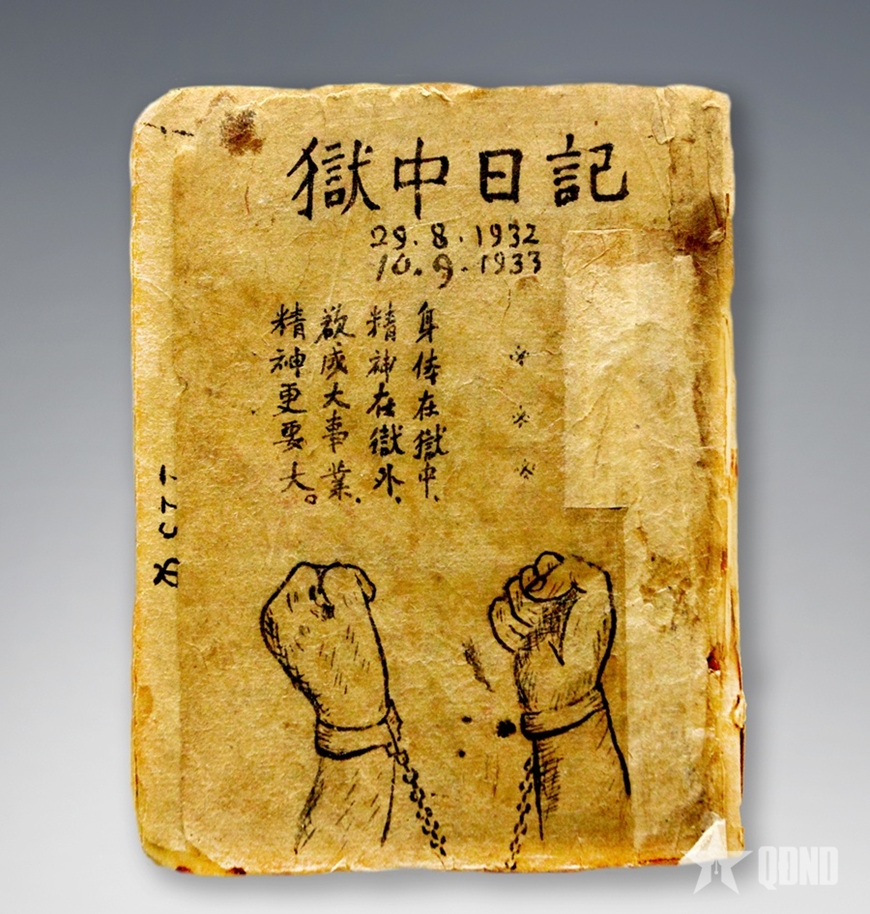 獄中日記
29.8.1932
10.9.1933
身体在獄中、
精神在獄外、
欲成大事業、
精神更要大。
QĐND